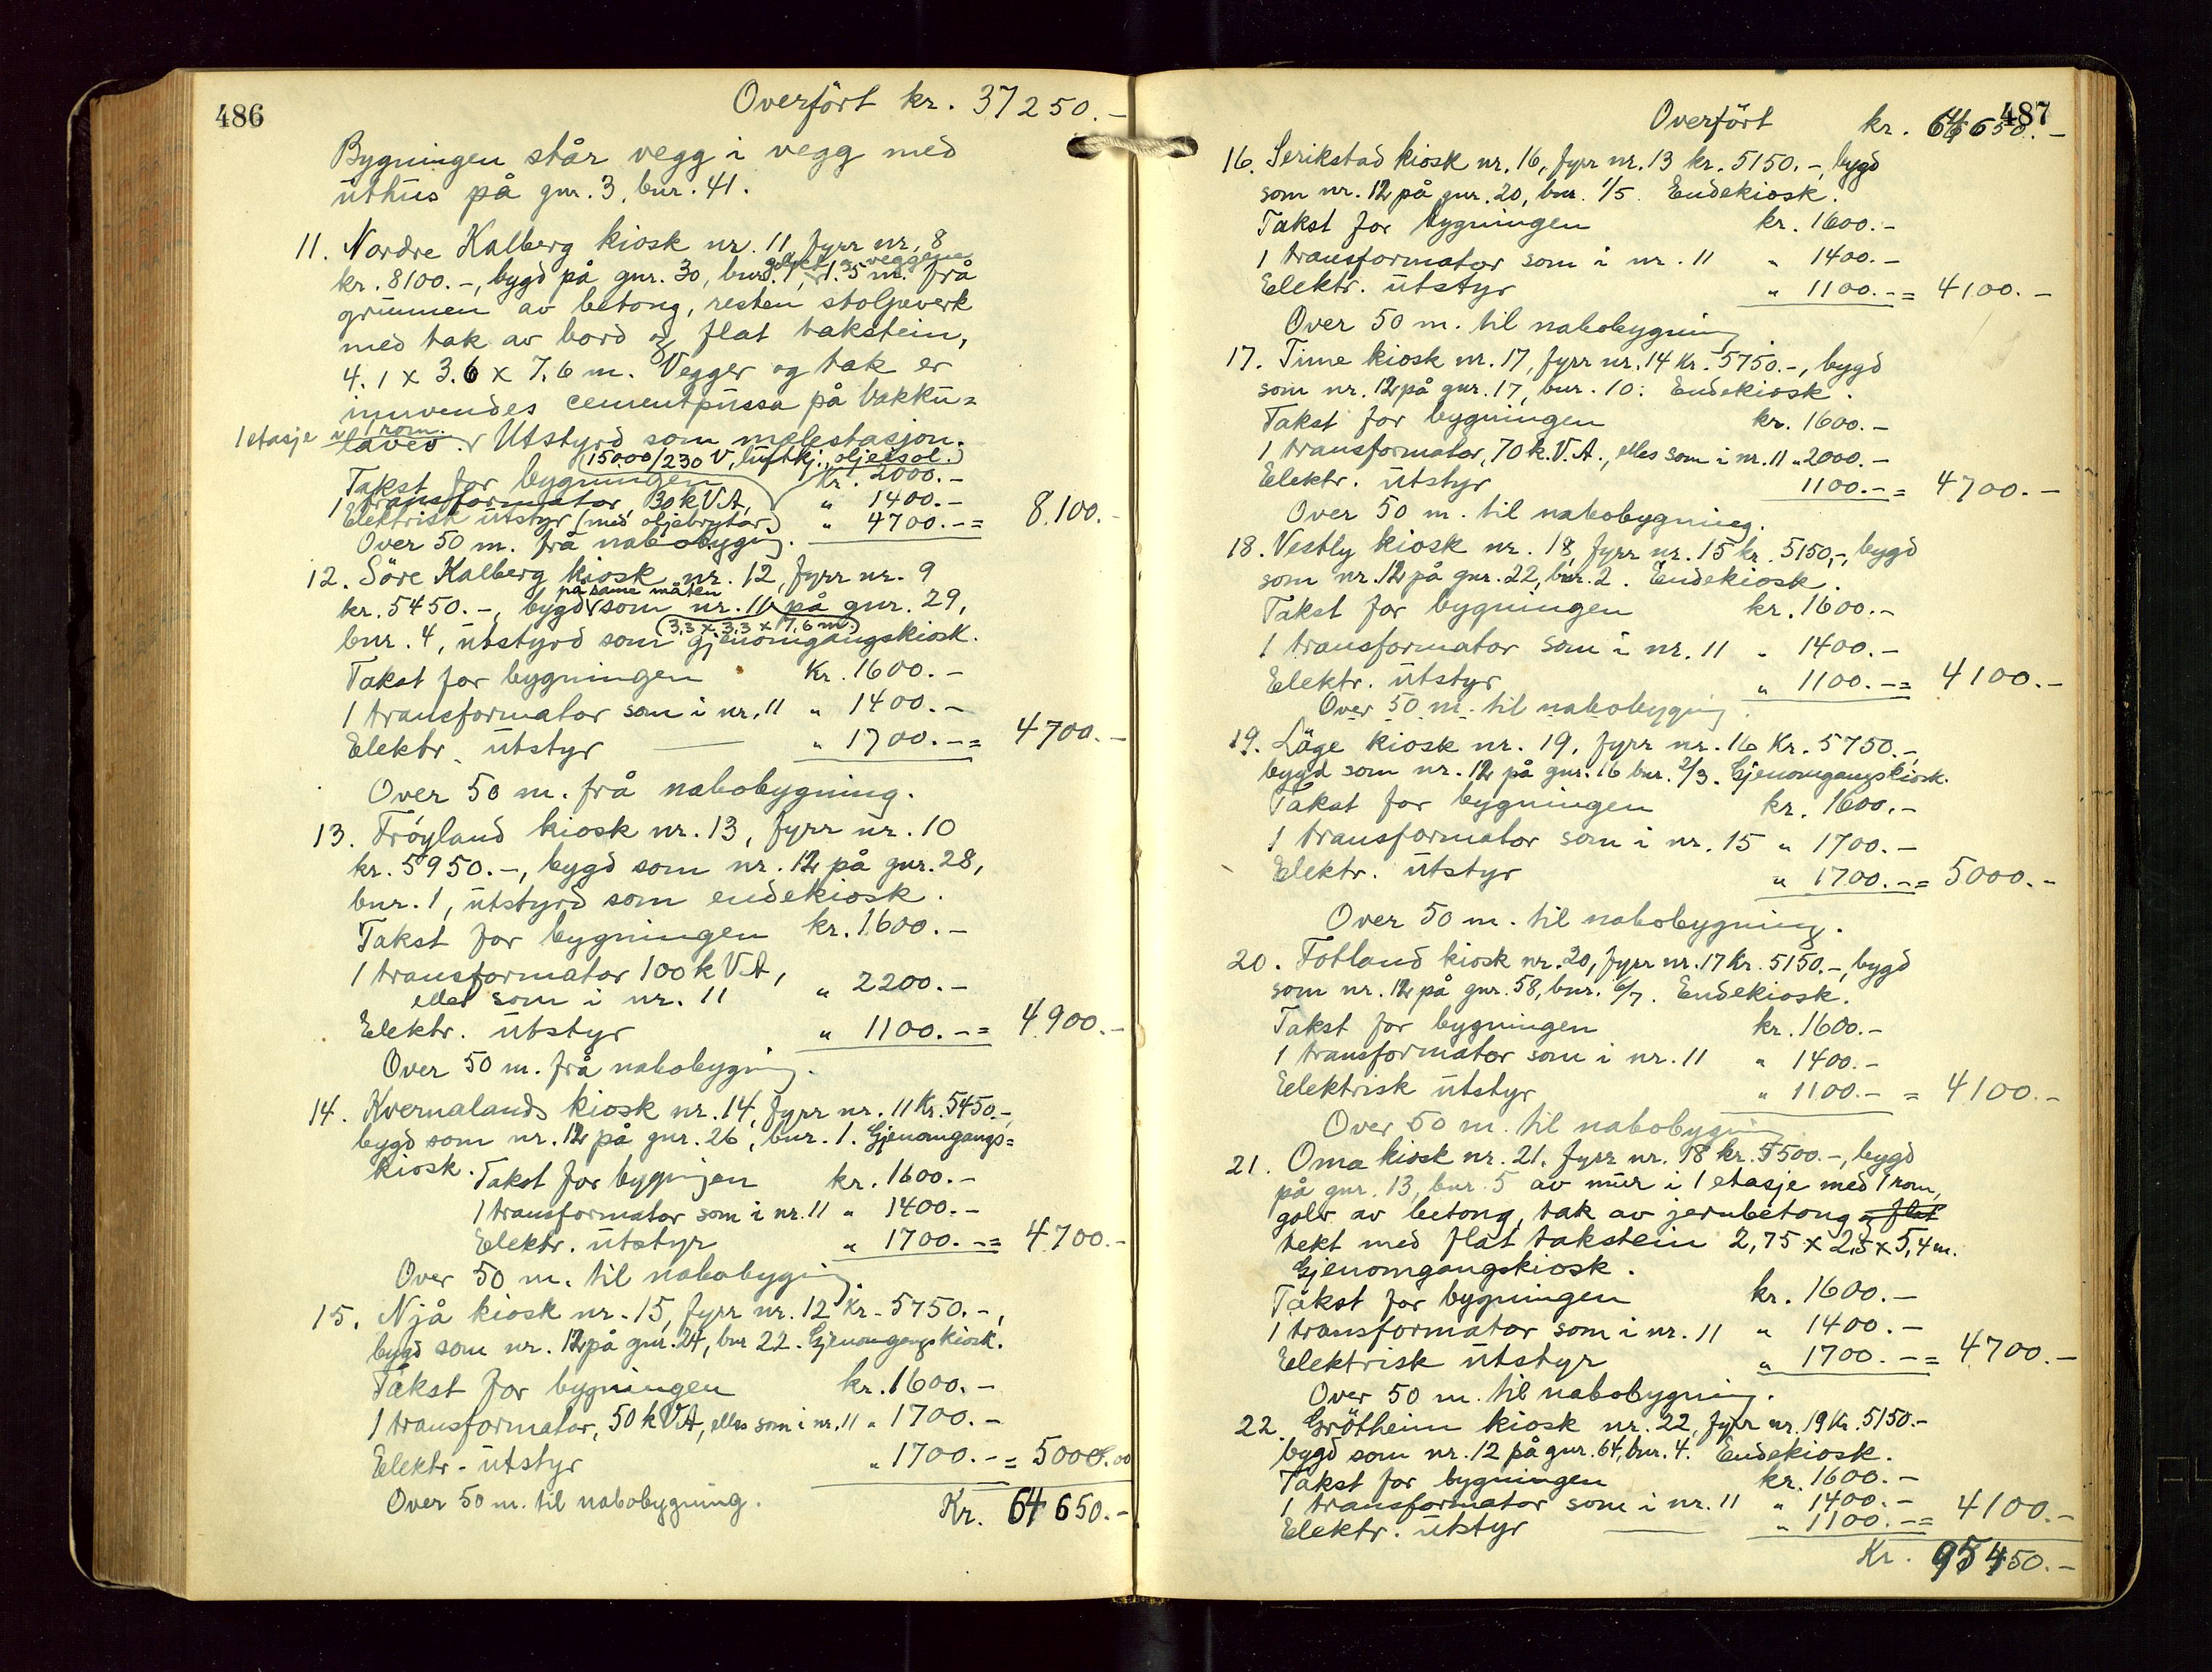 486
Overfört kr. 37250.-
Bygningen står vegg i vegg med
uthus på gnr. 3, bnr. 41.
11. Nordre Kalberg kiosk nr. 11, fyrr nr. 8
kr. 8100.-, bygd på gnr. 30, bnr. 1, golvet og veggene 1.5 m. frå
grunnen av betong, resten stolpeverk
med tak av bord og flat takstein,
4.1 x 3.6 x 7.6 m. Vegger og tak er
innvendes cementpussa på bakku=
1 etasje 1 rom. laved. Utstyrd som målestasjon.
(15000/230 V, luftkj., oljeisol.)
Takst for bygningen kr. 2000.-
1 transformator, 30 k V.A, " 1400.-
Elektrisk utstyr (med oljebrytar) " 4700.- = 8.100.-
Over 50 m. frå nabobygning.
12. Söre Kalberg kiosk nr. 12, fyrr nr. 9
kr. 5450.-, bygd på same måten som nr. 11 på gnr. 29,
(3,3 x 3,3 x 7,6 m.)
bnr. 4, utstyrd som gjenomgangskiosk.
Takst for bygningen Kr. 1600.-
1 transformator som i nr. 11 " 1400.-
Elektr. utstyr " 1700.- = 4700.-
Over 50 m. frå nabobygning.
13. Fröyland kiosk nr. 13, fyrr nr. 10
kr. 5950.-, bygd som nr. 12 på gnr. 28,
bnr. 1, utstyrd som endekiosk.
Takst for bygningen kr. 1600.-
1 transformator 100 k V.A,
elles som i nr. 11 " 2200.-
Elektr. utstyr " 1100.- = 4.900.-
Over 50 m. frå nabobygning.
14. Kvernalands kiosk nr. 14, fyrr nr. 11 Kr. 5450.-,
bygd som nr. 12 på gnr. 26, bnr. 1. Gjenomgangs=
kiosk. Takst for bygningen kr. 1600.-
1 transformator som i nr. 11 " 1400.-
Elektr. utstyr " 1700.- = 4.700.-
Over 50 m. til nabobygning.
15. Njå kiosk nr. 15, fyrr nr. 12 Kr. 5750.-,
bygd som nr. 12 på gnr. 24, bnr 22. Gjenomgangskiosk.
Takst for bygningen kr. 1600.-
1 transformator, 50 k V.A, elles som i nr. 11 " 1700.-
Elektr. utstyr " 1700.- = 5000.00
Over 50 m. til nabobygning.
Kr. 64 650.-
487
Overfört kr. 64650.-
16. Serikstad kiosk nr. 16, fyrr nr. 13 kr. 5150.-, bygd
som nr. 12 på gnr. 20, bnr. 1/5. Endekiosk.
Takst for bygningen kr. 1600.-
1 transformator som i nr. 11 " 1400.-
Elektr. utstyr " 1100.- = 4100.-
Over 50 m. til nabobygning.
17. Time kiosk nr. 17, fyrr nr. 14 Kr. 5750.-, bygd
som nr. 12 på gnr. 17, bnr. 10. Endekiosk.
Takst for bygningen kr. 1600.-
1 transformator, 70 k.V.A., elles som i nr. 11 " 2000.-
Elektr. utstyr 1100.- = 4700.-
Over 50 m. til nabobygning.
18. Vestly kiosk nr. 18, fyrr nr. 15 kr. 5150,-, bygd
som nr. 12 på gnr. 22, bnr. 2. Endekiosk.
Takst for bygningen kr. 1600.-
1 transformator som i nr. 11 " 1400.-
Elektr. utstyr " 1100.- = 4100.-
Over 50 m. til nabobygning.
19. Läge kiosk nr. 19, fyrr nr. 16 Kr. 5750.-,
bygd som nr. 12 på gnr. 16 bnr. 2/3. Gjenomgangskiosk.
Takst for bygningen kr. 1600.-
1 transformator som i nr. 15 " 1700.-
Elektr. utstyr " 1700.- = 5000.-
Over 50 m. til nabobygning.
20. Fotland kiosk nr. 20, fyrr nr. 17 Kr. 5150.-, bygd
som nr. 12 på gnr. 58, bnr. 6/7. Endekiosk.
Takst for bygningen kr. 1600.-
1 transformator som i nr. 11 " 1400.-
Elektrisk utstyr " 1100.- = 4100.-
Over 50 m. til nabobygning
21. Oma kiosk nr. 21, fyrr nr. 18 kr. 5500.-, bygd
på gnr. 13, bnr. 5 av mur i 1 etasje med 1 rom,
golv av betong, tak av jernbetong o flat
tekt med flat takstein 2,75 x 2,5 x 5,4 m.
Gjenomgangskiosk.
Takst for bygningen kr. 1600.-
1 transformator som i nr. 11 " 1400.-
Elektrisk utstyr " 1700.- = 4700.-
Over 50 m. til nabobygning.
22. Grötheim kiosk nr. 22, fyrr nr. 19 Kr. 5150.-
bygd som nr. 12 på gnr. 64, bnr. 4. Endekiosk.
Takst for bygningen kr. 1600.-
1 transformator som i nr. 11 " 1400.-
Elektr. utstyr " 1100.- = 4100.-
Kr. 95450.-